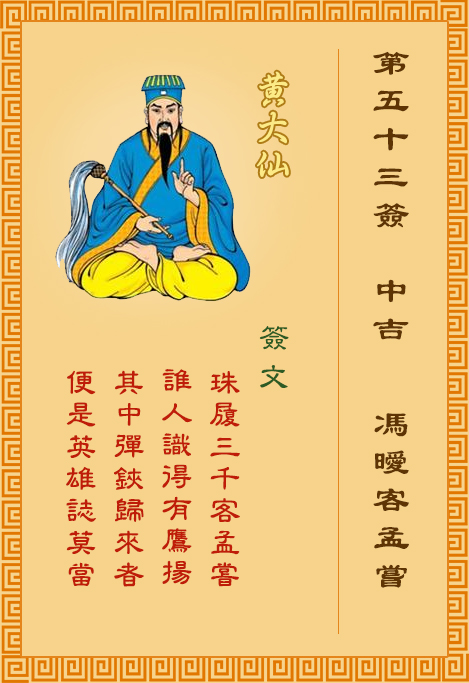 第五十三簽 中吉 馮曖客孟嘗
黃大仙
簽文
珠履三千客孟嘗
誰人識得有鷹揚
其中彈鋏歸來者
便是英雄誌莫當